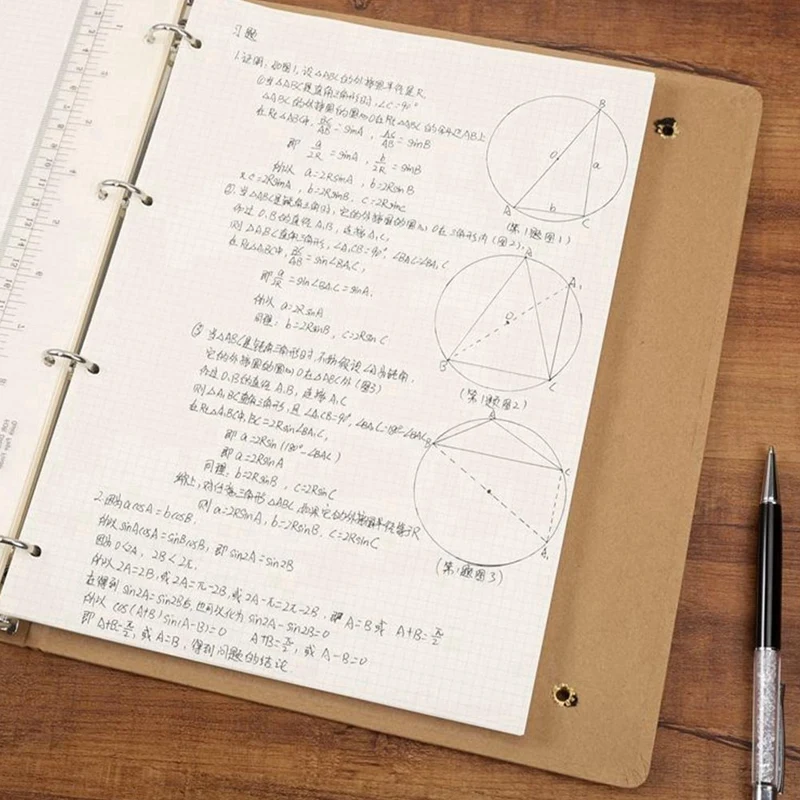 习题
1.证明:如图1,设△ABC的外接圆半径是R.
①当△ABC是直角三角形时,∠C=90°
△ABC的外接圆的圆心O在Rt△ABC的斜边AB上
在Rt△ABC中,BC/AB=sinA,AC/AB=sinB
即 a/2R=sinA,b/2R=sinB
所以 a=2RsinA,b=2RsinB
又c=2RsinA,b=2RsinB,c=2RsinC
②当△ABC是锐角三角形时,它的外接圆的圆心O在三角形内(图2),
作过O,B的直径A₁B,连接A₁C,
则△A₁BC直角三角形,∠A₁CB=90°,∠BAC=∠BA₁C
在Rt△A₁BC中,BC/A₁B=sin∠BA₁C,
即a/2R=sin∠BA₁C=sinA,
所以 a=2RsinA
同理:b=2RsinB,c=2RsinC
③当△ABC是钝角三角形时,不妨假设∠A为钝角,
它的外接圆的圆心O在△ABC外(图3)
作过O,B的直径A₁B,连接A₁C
则△A₁BC直角三角形,且∠A₁CB=90°,∠BA₁C=180°-∠BAC
在Rt△A₁BC中,BC=2Rsin∠BA₁C,
即 a=2Rsin(180°-∠BAC)
即 a=2RsinA
同理:b=2RsinB,c=2RsinC
综上,对任意三角形△ABC,如果它的外接圆半径等于R
则 a=2RsinA,b=2RsinB,c=2RsinC
2.因为acosA=bcosB,
所以sinAcosA=sinBcosB,即sin2A=sin2B
因为0<2A,2B<2π,
所以2A=2B,或2A=π-2B,或2A-π=2π-2B,即A=B或 A+B=π/2
在得到sin2A=sin2B后,也可以化为sin2A-sin2B=0
所以 cos(A+B)sin(A-B)=0 A+B=π/2,或 A-B=0
即A+B=π/2,或A=B,得到问题的结论
B
O
a
A
b
C
(第1题图1)
A
A₁
O
B
C
(第1题图2)
A
B
C
A₁
(第1题图3)